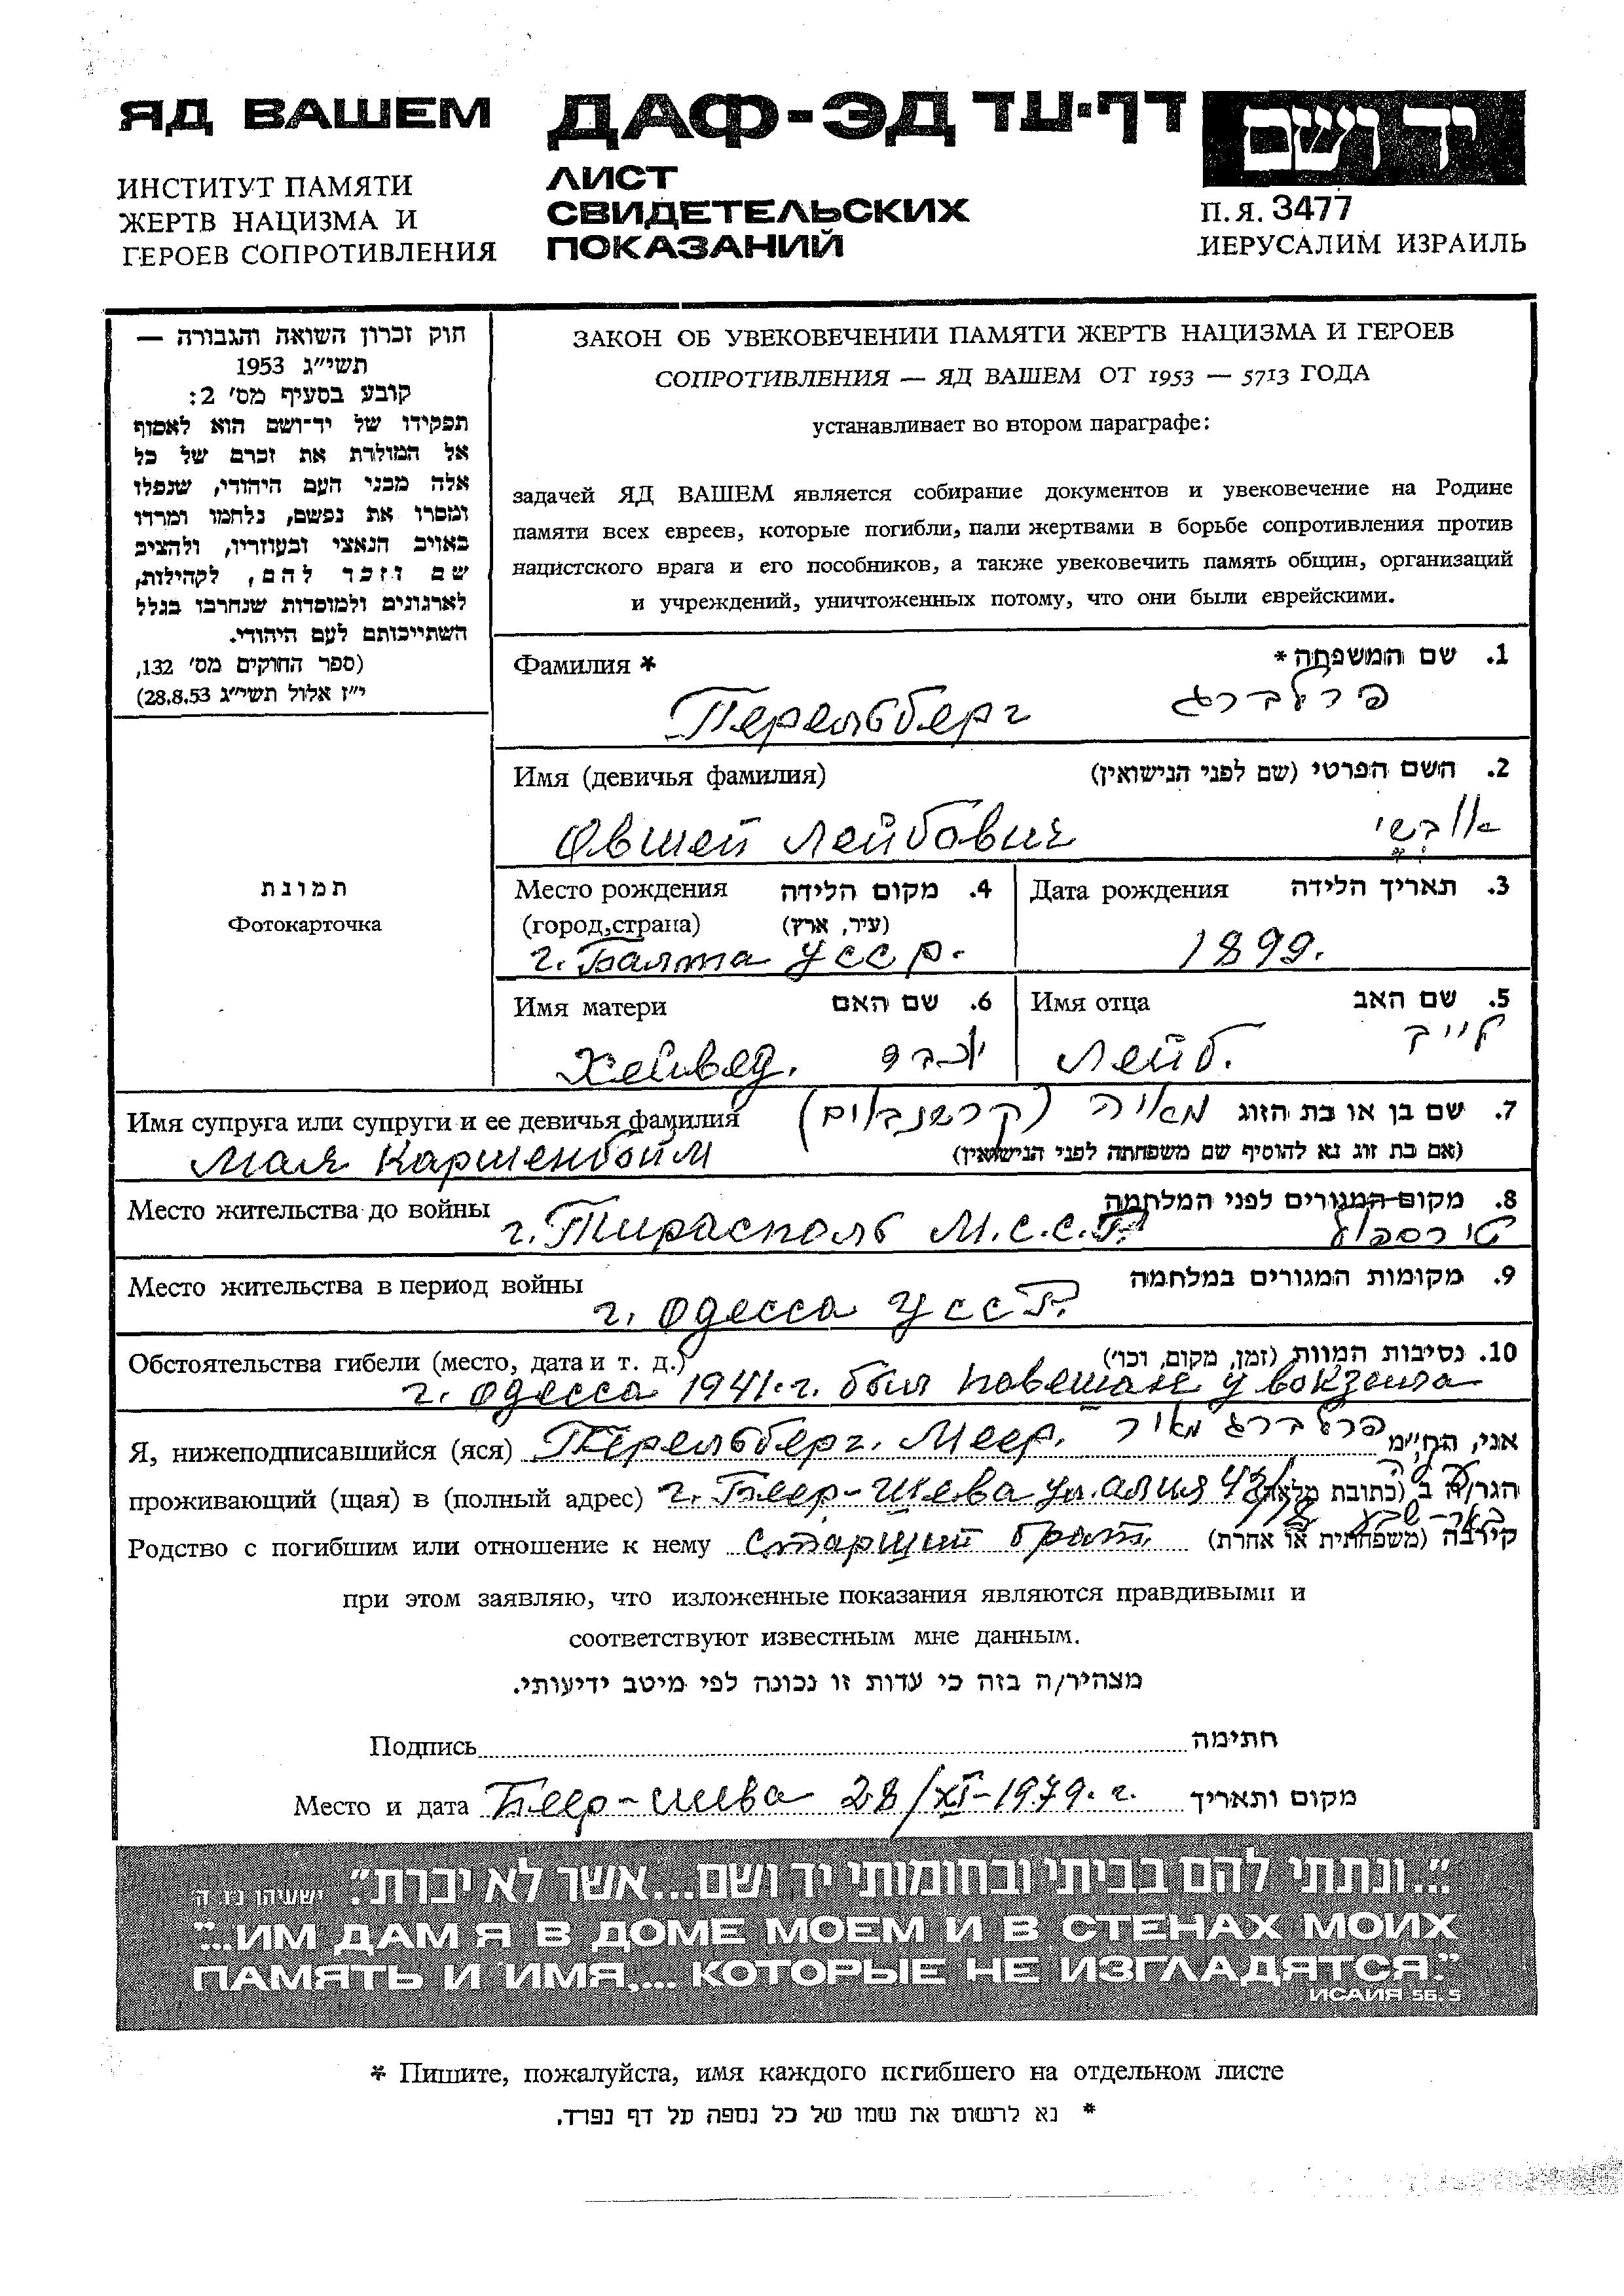 ЯД ВАШЕМ
ИНСТИТУТ ПАМЯТИ
ЖЕРТВ НАЦИЗМА И
ГЕРОЕВ СОПРОТИВЛЕНИЯ
ДАФ-ЭД דף-עד
ЛИСТ
СВИДЕТЕЛЬСКИХ
ПОКАЗАНИЙ
יד ושם
П.Я. 3477
ИЕРУСАЛИМ ИЗРАИЛЬ
חוק זכרון השואה והגבורה —
תשי״ג 1953
קובע בסעיף מס׳ 2:
תפקידו של יד־ושם הוא לאסוף
אל המולדת את זכרם של כל
אלה מבני העם היהודי, שנפלו
ומסרו את נפשם, נלחמו ומרדו
באויב הנאצי ובעוזריו, ולהציב
שם וזכר להם, לקהילות,
לארגונים ולמוסדות שנחרבו בגלל
השתייכותם לעם היהודי.
(ספר החוקים מס׳ 132,
י״ז אלול תשי״ג 28.8.53)
ЗАКОН ОБ УВЕКОВЕЧЕНИИ ПАМЯТИ ЖЕРТВ НАЦИЗМА И ГЕРОЕВ
СОПРОТИВЛЕНИЯ — ЯД ВАШЕМ ОТ 1953 — 5713 ГОДА
устанавливает во втором параграфе:
задачей ЯД ВАШЕМ является собирание документов и увековечение на Родине
памяти всех евреев, которые погибли, пали жертвами в борьбе сопротивления против
нацистского врага и его пособников, а также увековечить память общин, организаций
и учреждений, уничтоженных потому, что они были еврейскими.
Фамилия * 1. שם המשפחה*
Перельберг פרלברג
Имя (девичья фамилия) 2. השם הפרטי (שם לפני הנישואין)
Овшей Лейбович אובשי
תמונת
Фотокарточка
Место рождения 4. מקום הלידה
(город,страна) (עיר, ארץ)
г. Балта УССР.
Дата рождения 3. תאריך הלידה
1899.
Имя матери 6. שם האם
Хейвед. יוכבד
Имя отца 5. שם האב
Лейб. לייב
Имя супруга или супруги и ее девичья фамилия 7. שם בן או בת הזוג מאיה (קרשנבוים)
Мая Каршенбойм (אם בת זוג נא להוסיף שם משפחתה לפני הנישואין)
Место жительства до войны 8. מקום המגורים לפני המלחמה
г. Тирасполь М.С.С.Р. טירספול
Место жительства в период войны 9. מקומות המגורים במלחמה
г. Одесса УССР.
Обстоятельства гибели (место, дата и т. д.) 10. נסיבות המוות (זמן, מקום, וכו׳)
г. Одесса 1941.г. был повешан у вокзала
Я, нижеподписавшийся (яся) Перельберг. Меер. פרלברג מאיר אני, הח״מ
проживающий (щая) в (полный адрес) г. Беер-Шева ул. Алия 43/ הגר/ה ב (כתובת מלאה)
באר-שבע
Родство с погибшим или отношение к нему Старший брат. קירבה (משפחתית או אחרת)
при этом заявляю, что изложенные показания являются правдивыми и
соответствуют известным мне данным.
מצהיר/ה בזה כי עדות זו נכונה לפי מיטב ידיעותי.
Подпись חתימה
Место и дата Беер-шева 28/XI-1979.г. מקום ותאריך
״...ונתתי להם בביתי ובחומותי יד ושם...אשר לא יכרת״. ישעיהו נו. ה׳
"...ИМ ДАМ Я В ДОМЕ МОЕМ И В СТЕНАХ МОИХ
ПАМЯТЬ И ИМЯ,... КОТОРЫЕ НЕ ИЗГЛАДЯТСЯ."
ИСАИЯ 56. 5
* Пишите, пожалуйста, имя каждого погибшего на отдельном листе
* נא לרשום את שמו של כל נספה על דף נפרד.